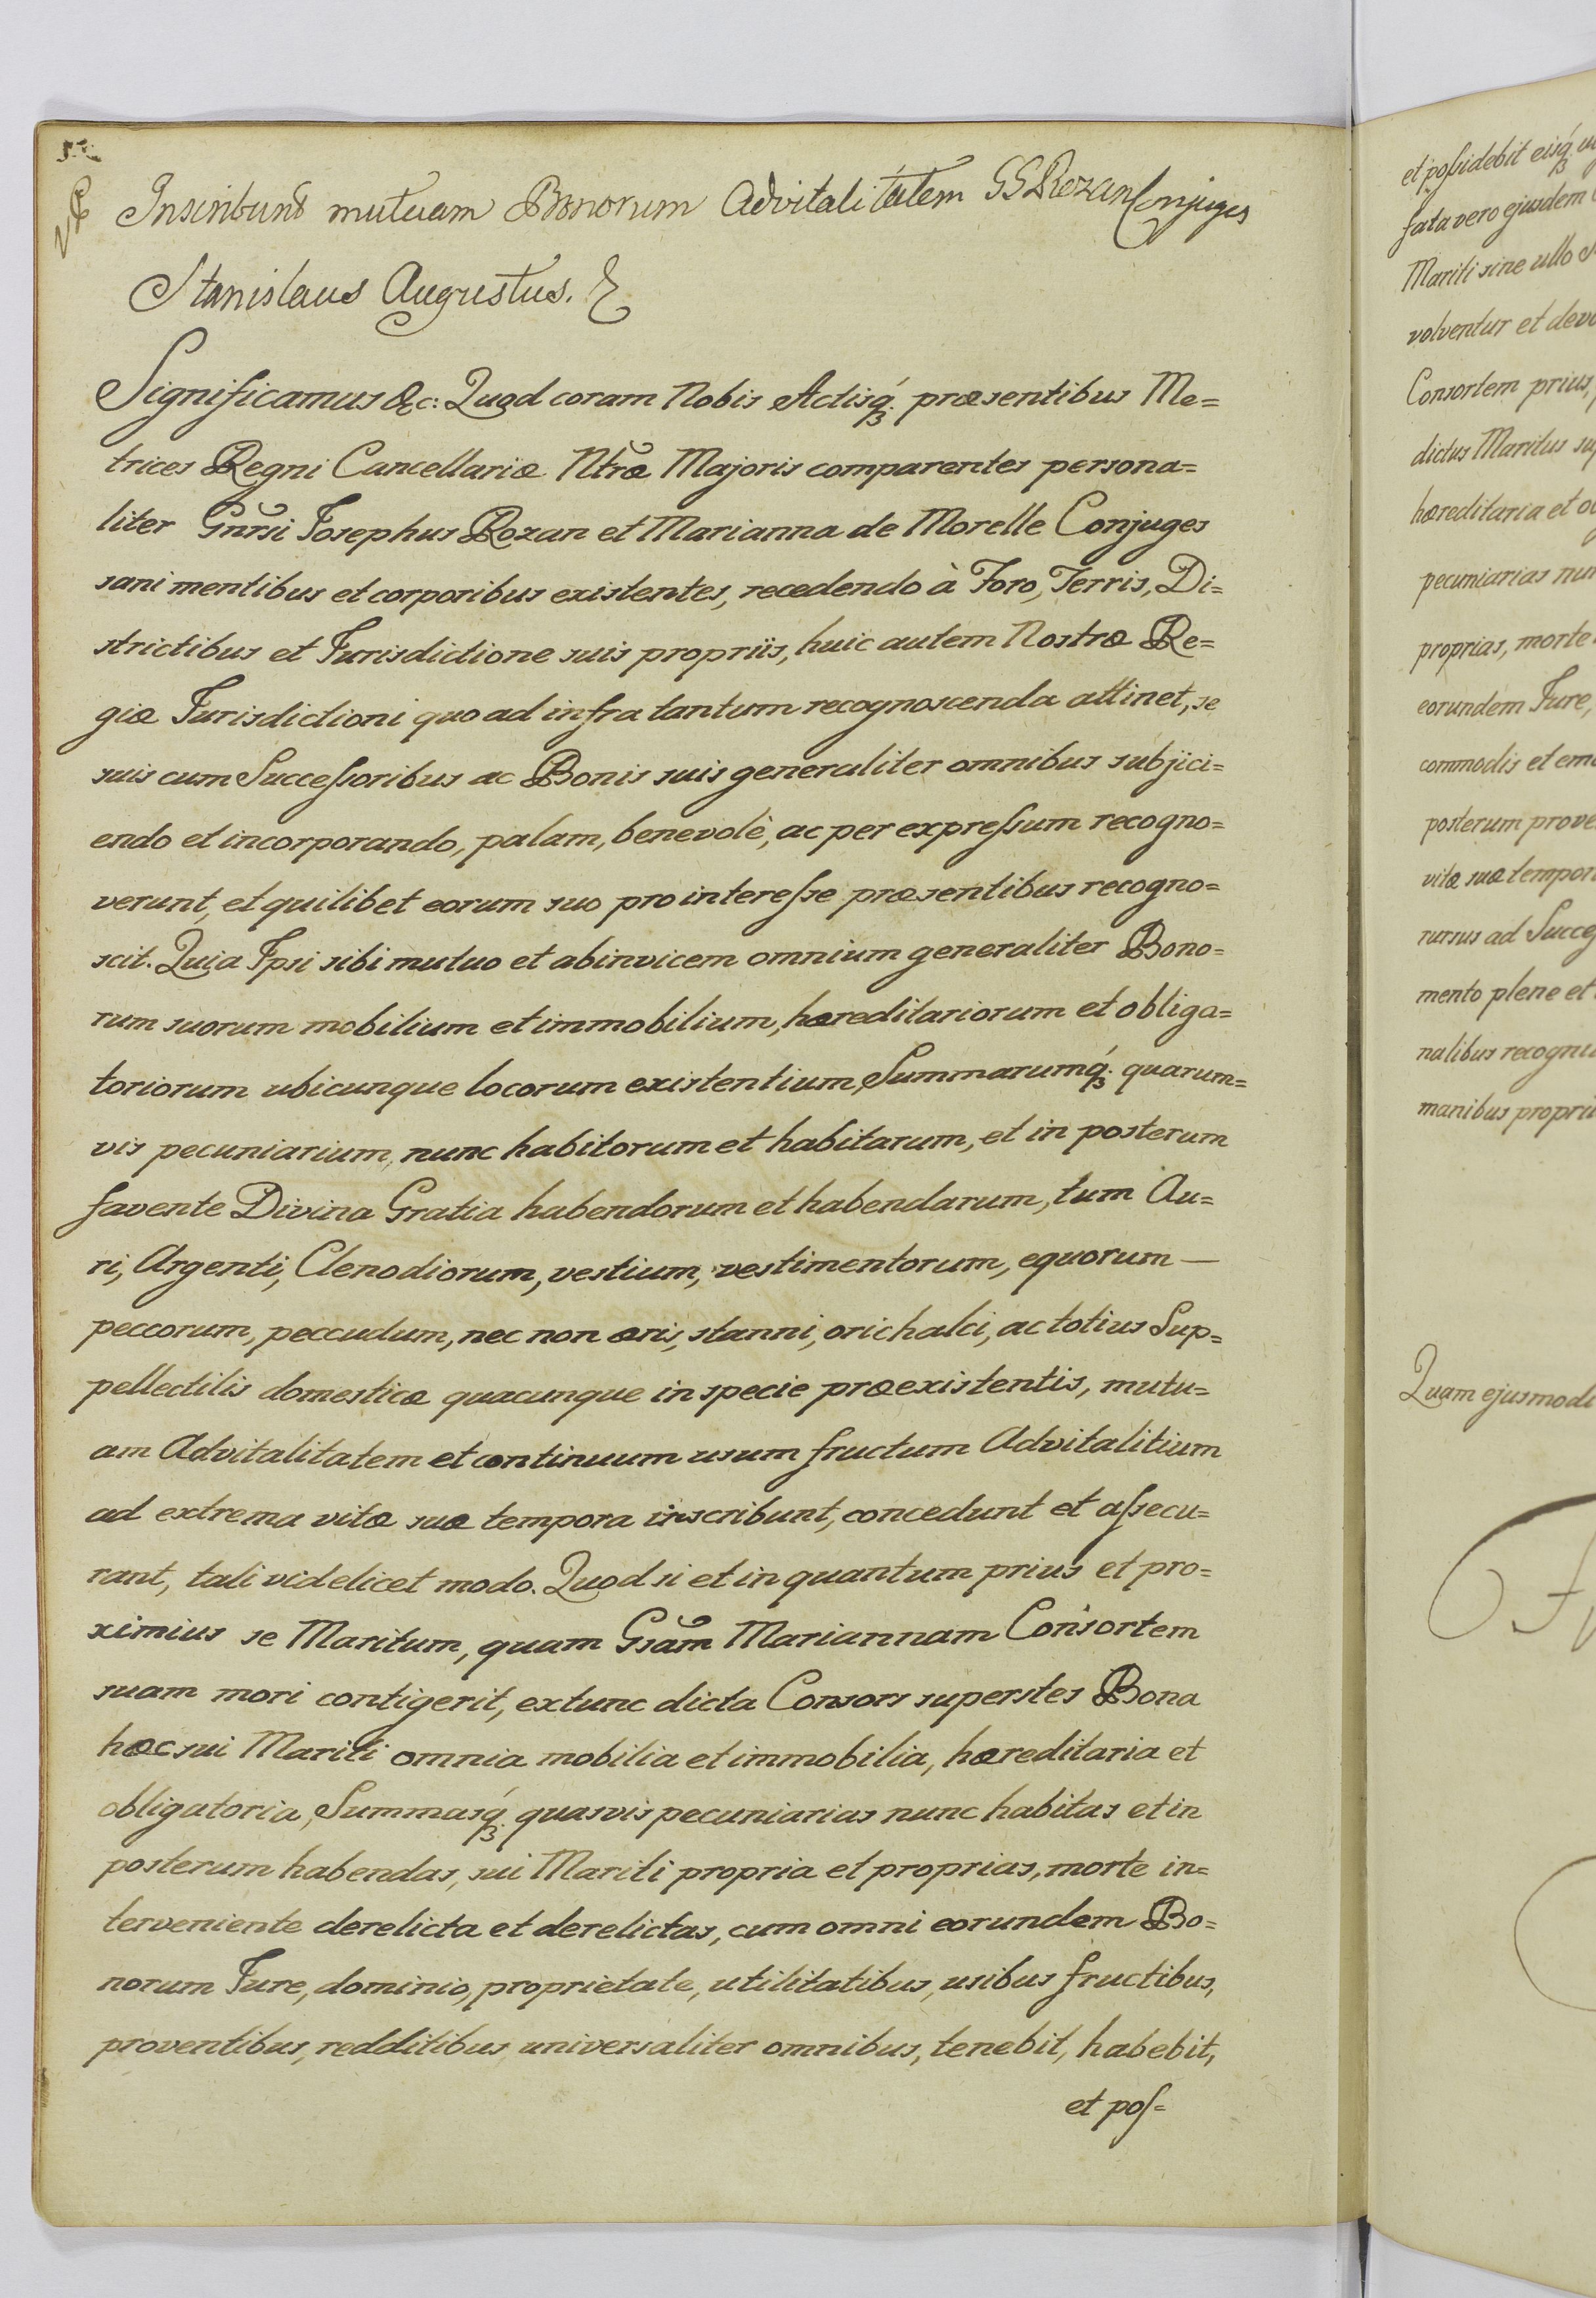 52.
Inscribunt mutuam Bonorum Advitalitatem GG Rozan Conjuges
Stanislaus Augustus. &
Significamus &c: Quod coram Nobis Actisq́ꝫ præsentibus Me=
trices Regni Cancellariæ Ntr̃æ Majoris comparentes persona=
liter Gnr̃si Josephus Rozan et Marianna de Morelle Conjuges
sani mentibus et corporibus existentes, recedendo à Foro, Terris, Di=
strictibus et Jurisdictione suis propriis, huic autem Nostræ Re=
giæ Jurisdictioni quo ad infra tantum recognoscenda attinet, se
suis cum Succeſsoribus ac Bonis suis generaliter omnibus subjici=
endo et incorporando, palam, benevolè, ac per expreſsum recogno=
verunt, et quilibet eorum suo pro intereſse præsentibus recogno=
scit. Quia Ipsi sibi mutuo et abinvicem omnium generaliter Bono=
rum suorum mobilium et immobilium, hæreditariorum et obliga=
toriorum ubicunque locorum existentium, Summarumq́ꝫ quarum=
vis pecuniarium, nunc habitorum et habitarum, et in posterum
favente Divina Gratia habendorum et habendarum, tum Au=
ri, Argenti, Clenodiorum, vestium, vestimentorum, equorum —
peccorum, peccudum, nec non æris, stanni, orichalci, ac totius Sup=
pellectilis domesticæ quacunque in specie præexistentis, mutu=
am Advitalitatem et continuum usum fructum Advitalitium
ad extrema vitæ suæ tempora inscribunt, concedunt et aſsecu=
rant, tali videlicet modo. Quod si et in quantum prius et pro=
ximius se Maritum, quam Gsãm Mariannam Consortem
suam mori contigerit, extunc dicta Consors superstes Bona
hæc sui Mariti omnia mobilia et immobilia, hæreditaria et
obligatoria, Summasq́ꝫ quasvis pecuniarias nunc habitas et in
posterum habendas, sui Mariti propria et proprias, morte in=
terveniente derelicta et derelictas, cum omni eorundem Bo=
norum Jure, dominio, proprietate, utilitatibus, usibus fructibus,
proventibus, redditibus universaliter omnibus, tenebit, habebit,
et poſ=
et poſsidebit eisq́ꝫ
fata vero ejusdem
Mariti sine ullo
volventur et
Consortem prius,
dictus Maritus
hæreditaria et
pecuniarias
proprias, morte
eorundem Jure,
commodis et
posterum
vitæ suæ
rursus ad
mento plene et
nalibus
manibus
Quam ejusmodi